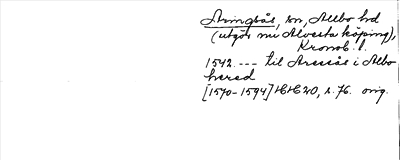 Aringsås, sn, Allbo hd
(utgör nu Alvesta köping),
Kronob. l.
1542. --- til Aressås i Albo
hered
[1570-1594] HH 20, s. 76. orig.